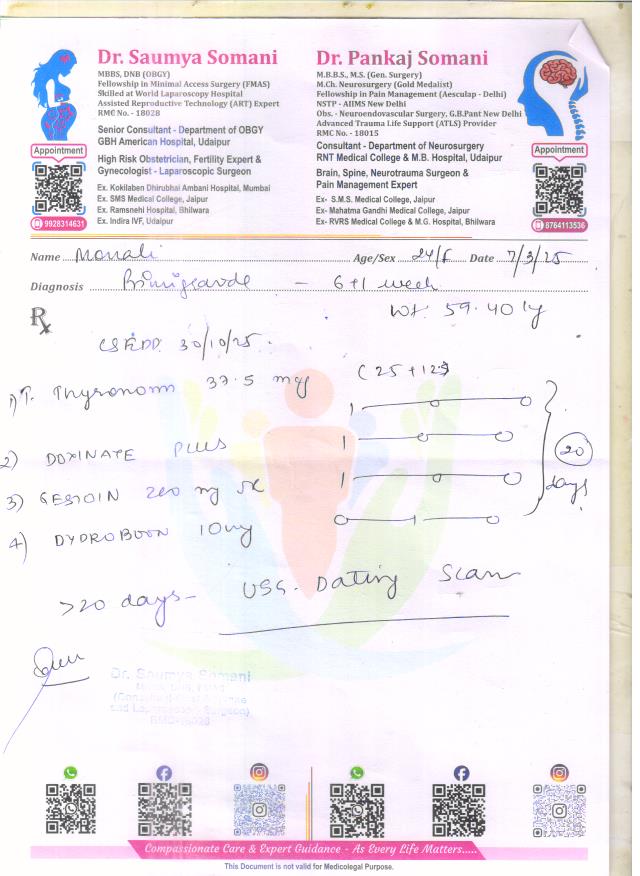 Dr. Saumya Somani
MBBS, DNB (OBGY)
Fellowship in Minimal Access Surgery (FMAS)
Skilled at World Laparoscopy Hospital
Assisted Reproductive Technology (ART) Expert
RMC No. - 18028
Senior Consultant - Department of OBGY
GBH American Hospital, Udaipur
High Risk Obstetrician, Fertility Expert &
Gynecologist - Laparoscopic Surgeon
Ex. Kokilaben Dhirubhai Ambani Hospital, Mumbai
Ex. SMS Medical College, Jaipur
Ex. Ramsnehi Hospital, Bhilwara
Ex. Indira IVF, Udaipur
Appointment
9928314631
Dr. Pankaj Somani
M.B.B.S., M.S. (Gen. Surgery)
M.Ch. Neurosurgery (Gold Medalist)
Fellowship in Pain Management (Aesculap - Delhi)
NSTP - AIIMS New Delhi
Obs. - Neuroendovascular Surgery, G.B.Pant New Delhi
Advanced Trauma Life Support (ATLS) Provider
RMC No. - 18015
Consultant - Department of Neurosurgery
RNT Medical College & M.B. Hospital, Udaipur
Brain, Spine, Neurotrauma Surgeon &
Pain Management Expert
Ex- S.M.S. Medical College, Jaipur
Ex- Mahatma Gandhi Medical College, Jaipur
Ex- RVRS Medical College & M.G. Hospital, Bhilwara
Appointment
8764113536
Name Monali Age/Sex 24/f Date 7/3/25
Diagnosis - 6+1 week
Wt. 59.40 kg
Rx
EDD 30/10/25.
1) T. Thyronorm 37.5 mcg (25 + 12.5) 1 — 0 — 0
2) DOXINATE PLUS 1 — 0 — 0
3) 200 mg SR 1 — 0 — 0
4) DYDROBOON 10mg 0 — 1 — 0
20 days
>20 days - USG. Dating Scan
Dr. Saumya Somani
RMC-18028
Compassionate Care & Expert Guidance - As Every Life Matters.....
This Document is not valid for Medicolegal Purpose.